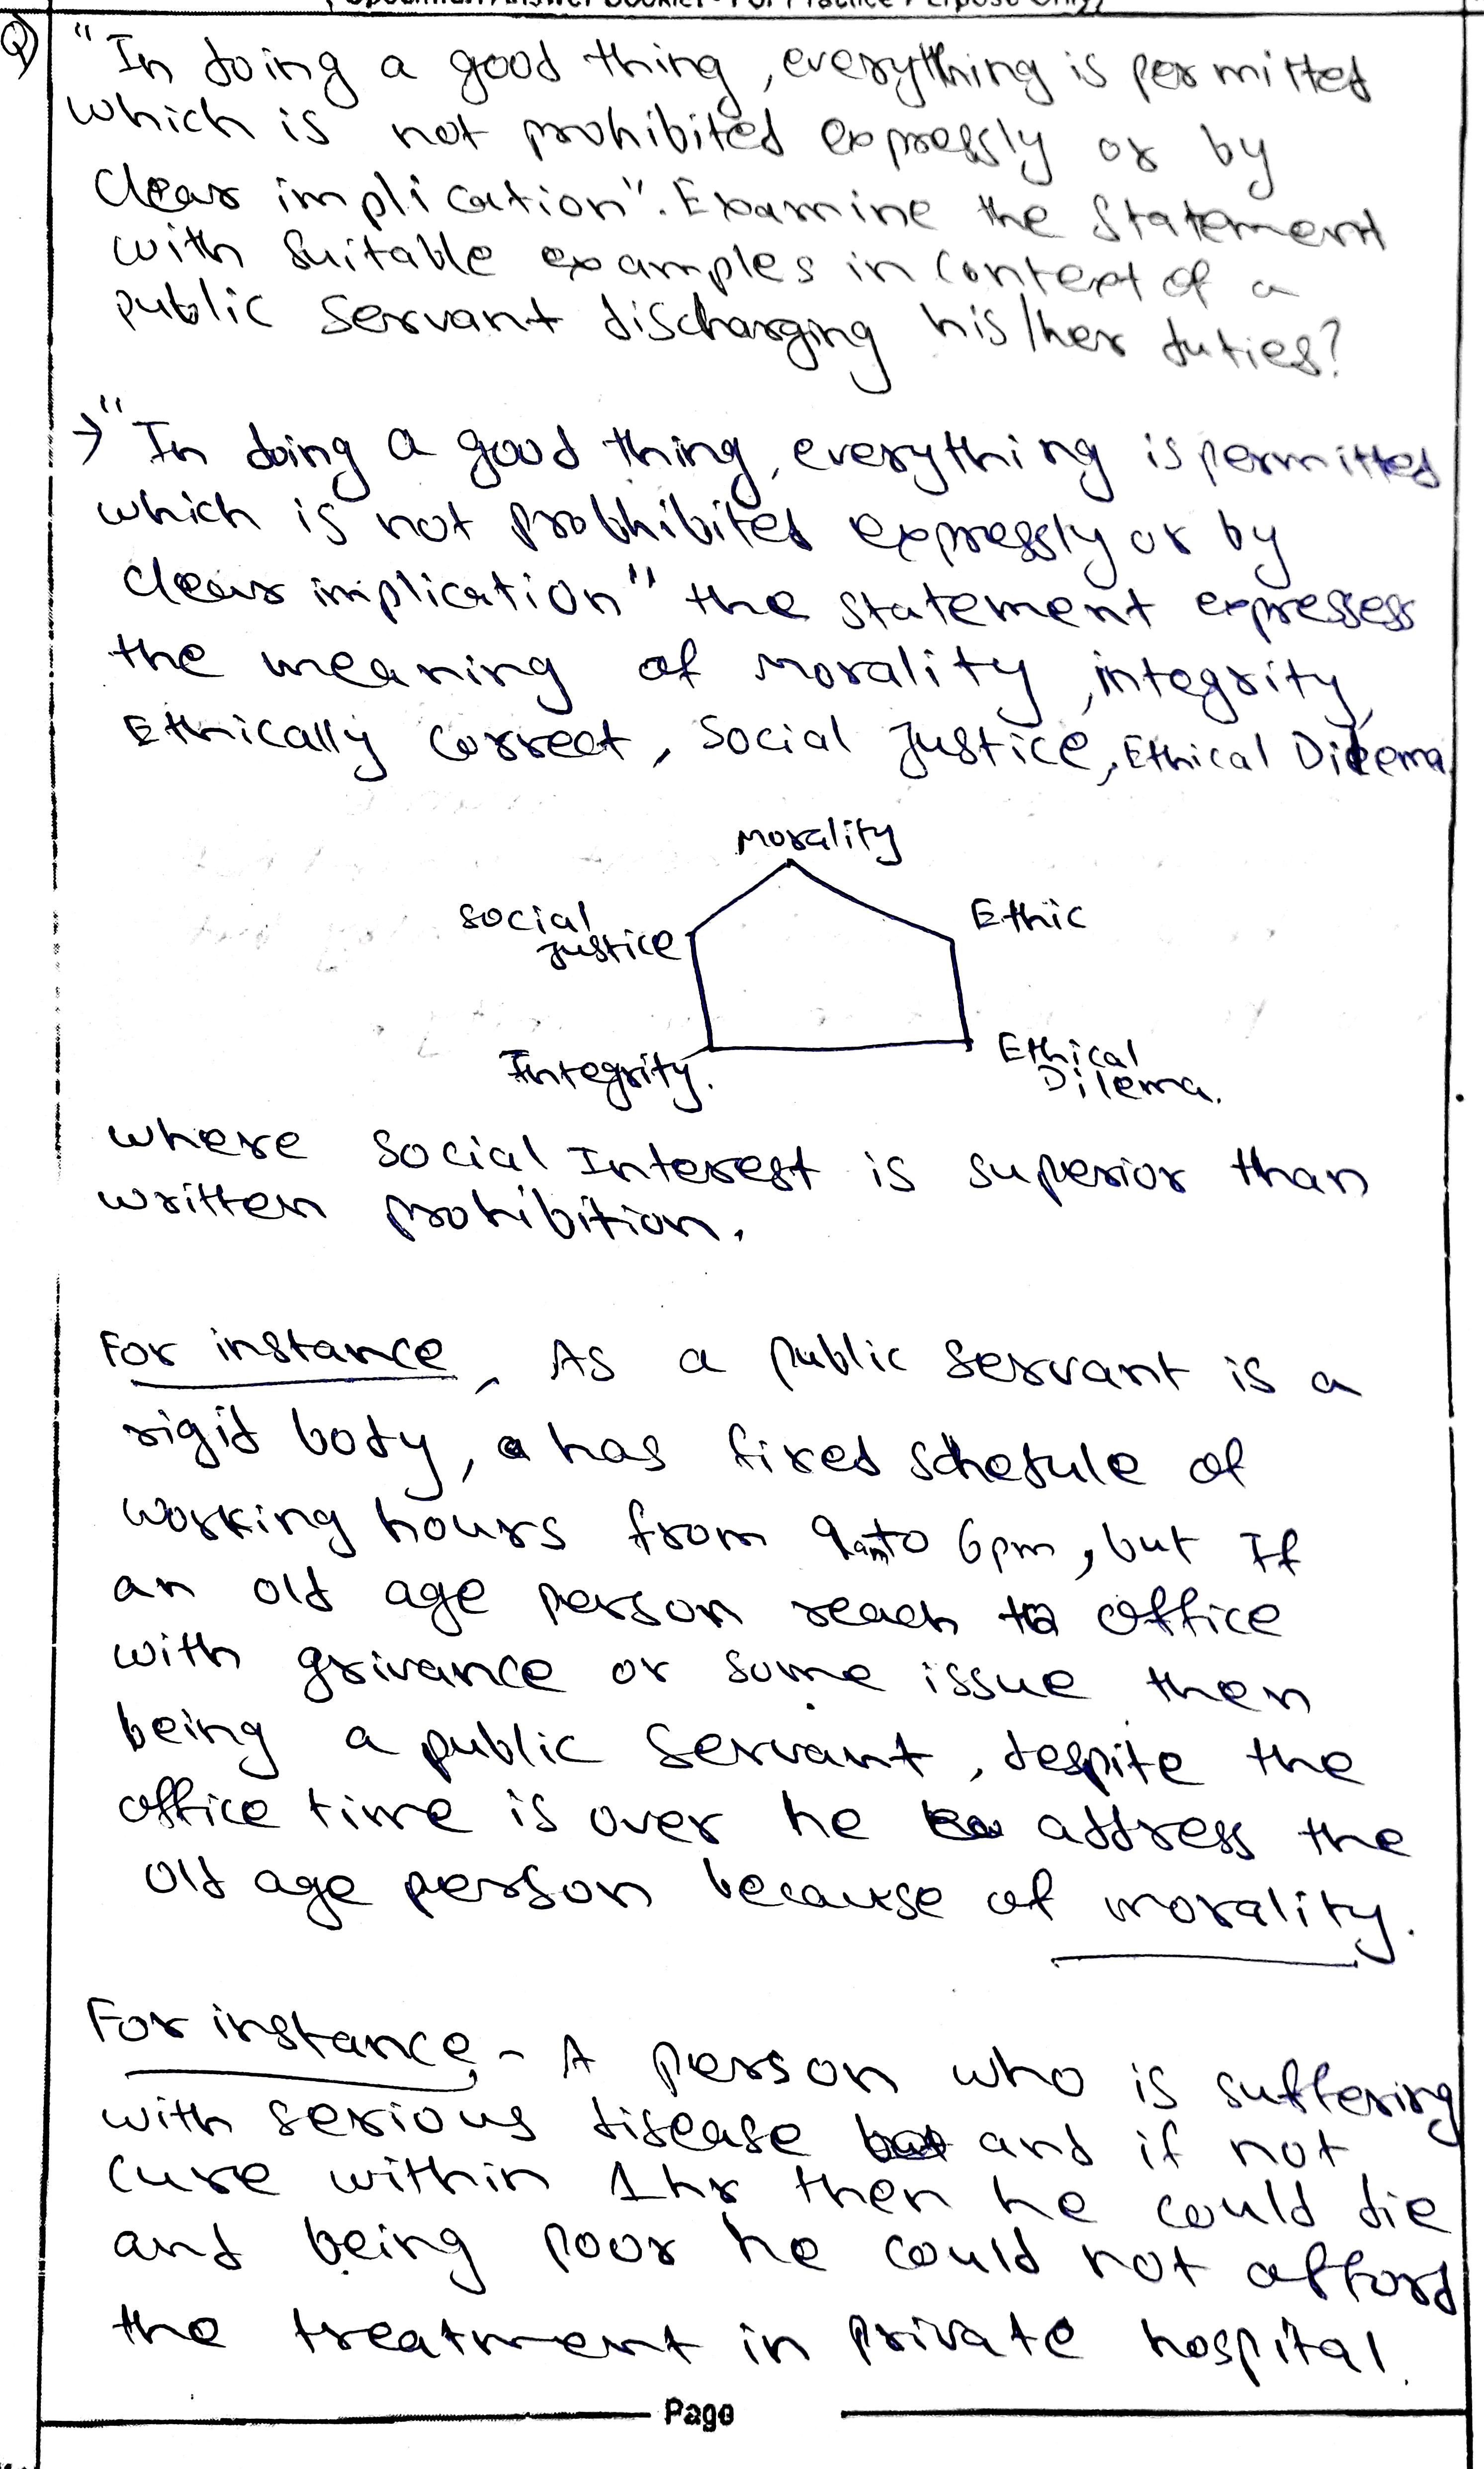 Q) "In doing a good thing, everything is permitted
which is not prohibited expressly or by
clear implication". Examine the statement
with suitable examples in context of a
public servant discharging his/her duties?
→ "In doing a good thing, everything is permitted
which is not probhibited expressly or by
clear implication" the statement expresses
the meaning of morality, integrity,
Ethically correct, Social Justice, Ethical Dilema
Morality
Social
Justice
Ethic
Integrity.
Ethical
Dilema.
where social Interest is superior than
written prohibition.
For instance, As a public servant is a
rigid body, has fixed schedule of
working hours from 9am to 6pm, but If
an old age person reach to office
with grivance or some issue then
being a public servant, despite the
office time is over he address the
old age person because of morality.
For instance - A person who is suffering
with serious disease and if not
cure within 1hr then he could die
and being poor he could not afford
the treatment in private hospital.
Page